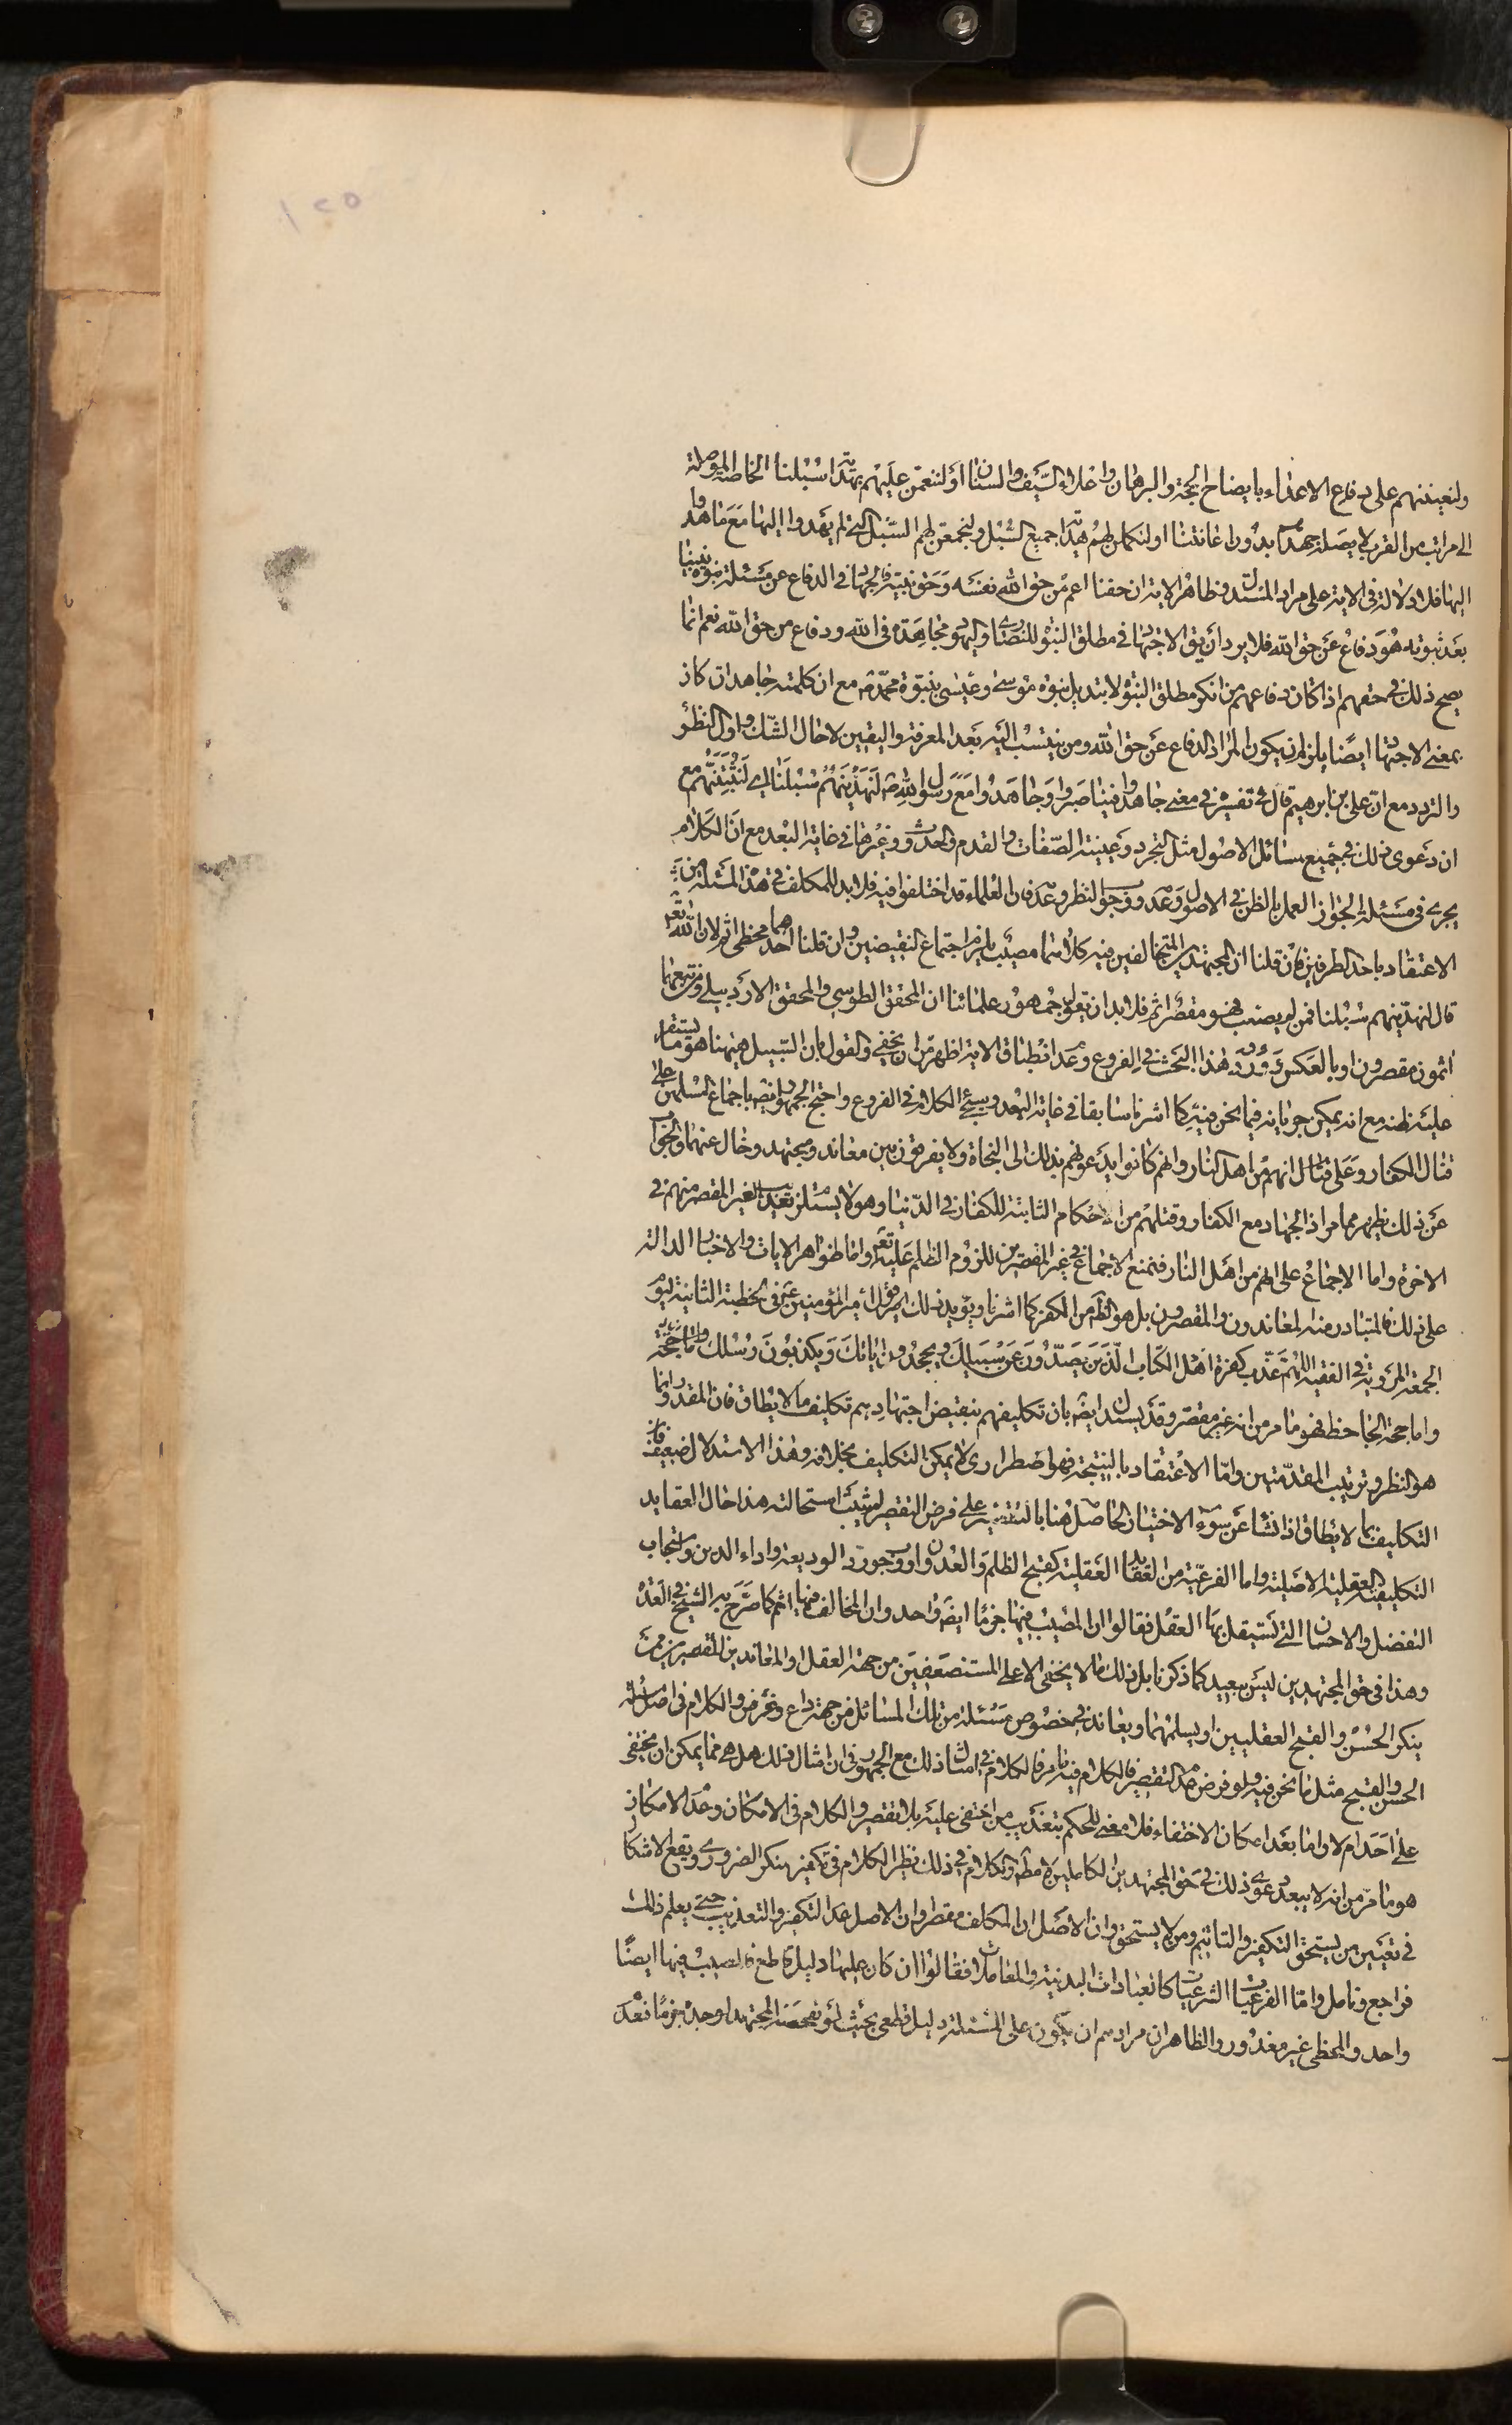 ١٢٥
ولنعيننهم على دفاع الاعداء بايضاح الحجة والبرهان واعلاء السيف والسنان او لننعمن عليهم بهداية سبلنا الخاصة الموصلة
الى مراتب من القرب لا يصله جهدهم بدون اعانتنا او لنكملن لهم هداية جميع السبل ولنجمعن لهم السبل التي لم يهدوا اليها مع ما هدوا
اليها فلا دلالة في الاية على مراد المستدل فظاهر الاية ان حقنا اعم من حق الله نفسه وحق نبيه فالجهاد في الدفاع عن مسئلة نبوة نبينا
بعد ثبوته هو دفاع عن حق الله فلا يرد ان يق الاجتهاد في مطلق النبوة للنصارى واليهود مجاهدة في الله ودفاع من حق الله نعم انما
يصح ذلك في حقهم اذا كان دفاعهم من انكر مطلق النبوة لا بتديل نبوة موسى وعيسى بنبوة محمد ص مع ان كلمة جاهدوا ان كان
بمعنى الاجتهاد ايضا يلزم ان يكون المراد الدفاع عن حق الله ومن ينتسب اليه بعد المعرفة واليقين لا حال الشك واول النظر
والتردد مع ان علي بن ابراهيم قال في تفسيره في معنى جاهدوا فينا صبروا وجاهدوا مع رسول الله ص لنهدينهم سبلنا اي لنثبتنهم مع
ان دعوى ذلك في جميع مسائل الاصول مثل التجرد وعينية الصفات والقدم والحدوث وغيرها في غاية البعد مع ان الكلام
يجرى في مسئلة الجواز العمل بالظن في الاصول وعدمه ووجوب النظر وعدمه فان العلماء قد اختلفوا فيه فلا بد للمكلف في هذا المسئلة من
الاعتقاد باحد الطرفين فان قلنا ان المجتهدين المتخالفين فيه كلاهما مصيب يلزم اجتماع النقيضين وان قلنا احدهما مخطئ اثم لان الله تعالى
قال لنهدينهم سبلنا فمن لم يصب فهو مقصر اثم فلا بد ان يقول جمهور علمائنا ان المحقق الطوسي والمحقق الاردبيلي ومن تبعهما
اثمون مقصرون او بالعكس وورود هذا البحث في الفروع وعدم انطباق الاية اظهر من ان يخفى والقول بان السبيل هيهنا هو ما يستقر
عليه ظنه مع انه يمكن جريانه فيما نحن فيه كما اشرنا سابقا في غاية البعد وسيجئ الكلام في الفروع واحتج الجمهور ايضا باجماع المسلمين على
قتال الكفار وعلى ان انهم من اهل النار وانهم كانوا يدعونهم بذلك الى النجاة ولا يفرقون بين معاند ومجتهد وخال عنهما والجواب
عن ذلك يظهر مما مر اذ الجهاد مع الكفار وقتلهم من الاحكام الثابتة للكفار في الدنيا وهو لا يستلزم تعذيب الغير المقصر منهم في
الاخرة واما الاجماع على انهم من اهل النار فنمنع الاجماع في غير المقصرين للزوم الظلم عليه تعالى واما ظواهر الايات والاخبار الدالة
على ذلك فالمتبادر منها المعاندون والمقصرون بل هو الظاهر من الكفر كما اشرنا ويؤيد ذلك قول امير المؤمنين ع في الخطبة الثانية ليوم
الجمعة المروية في الفقيه اللهم عذب كفرة اهل الكتاب الذين يصدون عن سبيلك ويجحدون اياتك ويكذبون رسلك
واما حجة الجاحظ فهو ما مر من انه غير مقصر وقد يستدل ايضا بان تكليفهم بنقيض اجتهادهم تكليف ما لا يطاق فان المقدور انما
هو النظر وترتيب المقدمتين واما الاعتقاد بالنتيجة فهو اضطراري لا يمكن التكليف بخلافه وهذا الاستدلال ضعيف فان
التكليف بما لا يطاق اذا نشا عن سوء الاختيار الحاصل هنا بالتقصير على فرض التقصير لم يثبت استحالته هذا حال العقايد
التكليفية العقلية الاصلية واما الفرعية من العقايد العقلية كقبح الظلم والعدوان ووجوب رد الوديعة واداء الدين واستحباب
التفضل والاحسان التي تستقل بها العقل فقالوا ان المصيب فيها جزما ايضا واحد وان المخالف فيها اثم كما صرح به الشيخ في العدة
وهذا في حق المجتهدين ليس ببعيد كما ذكرنا بل ذلك مما لا يخفى الا على المستضعفين من جهة العقل او المعاندين المقصرين ممن
ينكر الحسن والقبح العقليين او يسلمهما ويعاند في خصوص مسئلة من تلك المسائل من جهة داع وغرض والكلام في اصل مسئلة
الحسن والقبح مثل ما نحن فيه ولو فرض عدم التقصير فالكلام فيه ما مر فالكلام في امثال ذلك مع الجمهور في ان امثال ذلك هل هي مما يمكن ان يختفى
على احد ام لا واما بعد امكان الاختفاء فلا معنى للحكم بتعذيب من اختفى عليه بلا تقصير والكلام في الامكان وعدم الامكان
هو ما مر من انه لا يبعد دعوى ذلك في حق المجتهدين الكاملين لا مطلقا والكلام في ذلك نظير الكلام في تكفير منكر الضروري ويقع الاشكال
في تعيين من يستحق التكفير والتاثيم ومن لا يستحق وان الاصل ان المكلف مقصر او ان الاصل عدم التكفير والتعذيب حتى يعلم ذلك
فراجع وتامل واما الفرعيات الشرعيات كالعبادات البدنية والمعاملات فقالوا ان كان عليها دليل قاطع فالمصيب فيها ايضا
واحد والمخطئ غير معذور والظاهر ان مرادهم ان يكون على المسئلة دليل قطعي بحيث لو تفحصه المجتهد لوجده جزما فعدم